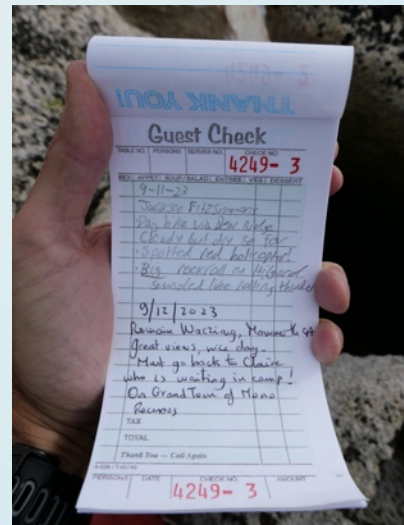 THANK YOU!
Guest Check
TABLE NO. PERSONS SERVER NO. CHECK NO.
4249- 3
BEV APPET SOUP/SALAD ENTREE VEG DESSERT
9-11-23
Jackson Fitzsimmons
Day hike via
Cloudy but dry so far
• Spotted red helicopter
• Big rockfall on
sounded like rolling thunder
9/12/2023
Romain Wacziarg,
great views, nice day.
Must go back to Claire
who is waiting in camp!
On Grand Tour of Mono
Recesses
TAX
TOTAL
Thank You — Call Again
PERSONS DATE CHECK NO. AMOUNT
4249- 3